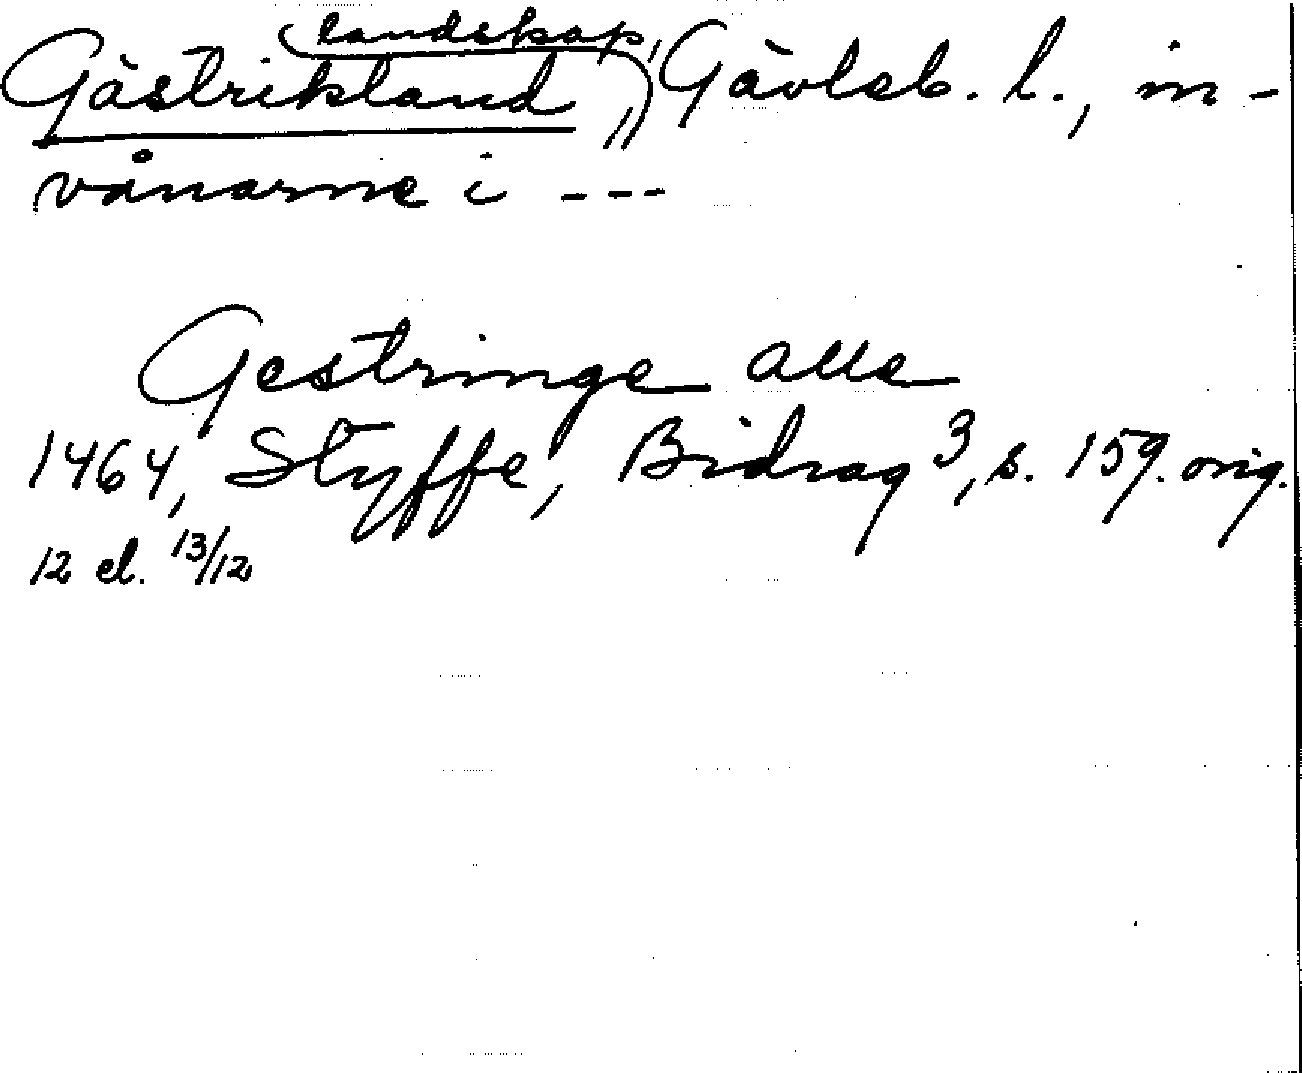 landskap,
Gästrikland, Gävleb. l., in-
vånarne i ---
Gestringe alle
1464, Styffe, Bidrag 3, s. 159. orig.
12 el. 13/12